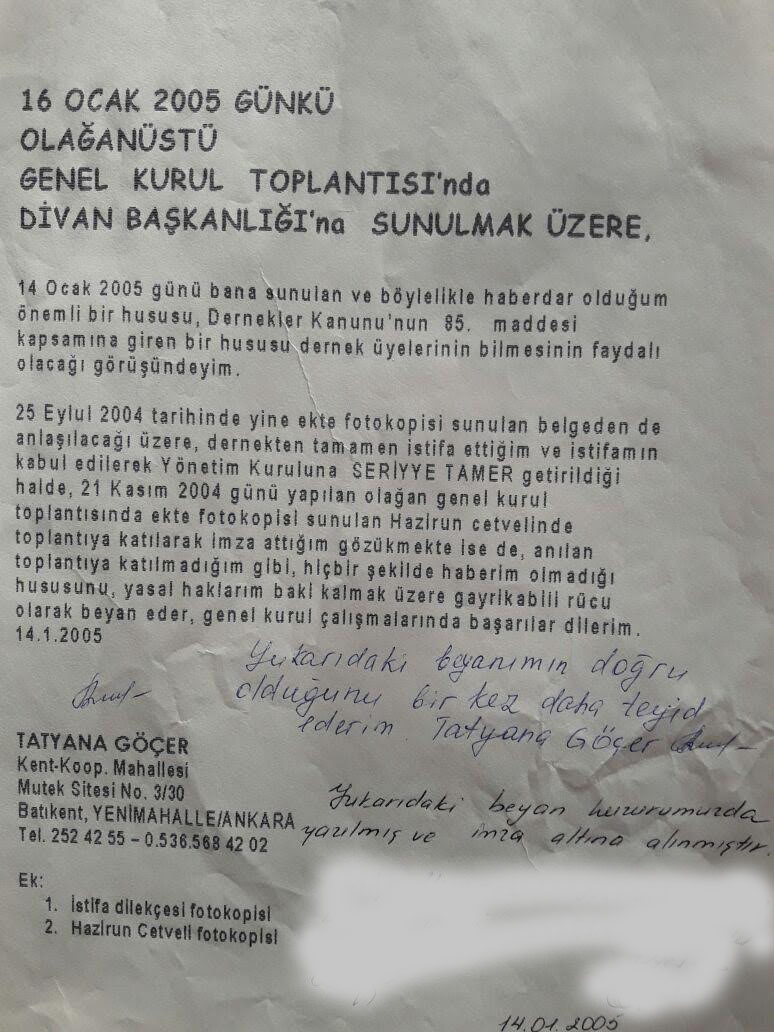 16 OCAK 2005 GÜNKÜ
OLAĞANÜSTÜ
GENEL KURUL TOPLANTISI'nda
DİVAN BAŞKANLIĞI'na SUNULMAK ÜZERE,
14 Ocak 2005 günü bana sunulan ve böylelikle haberdar olduğum
önemli bir hususu, Dernekler Kanunu'nun 85. maddesi
kapsamına giren bir hususu dernek üyelerinin bilmesinin faydalı
olacağı görüşündeyim.
25 Eylul 2004 tarihinde yine ekte fotokopisi sunulan belgeden de
anlaşılacağı üzere, dernekten tamamen istifa ettiğim ve istifamın
kabul edilerek Yönetim Kuruluna SERİYYE TAMER getirildiği
halde, 21 Kasım 2004 günü yapılan olağan genel kurul
toplantısında ekte fotokopisi sunulan Hazirun cetvelinde
toplantıya katılarak imza attığım gözükmekte ise de, anılan
toplantıya katılmadığım gibi, hiçbir şekilde haberim olmadığı
hususunu, yasal haklarım baki kalmak üzere gayrikabili rücu
olarak beyan eder, genel kurul çalışmalarında başarılar dilerim.
14.1.2005
Yukarıdaki beyanımın doğru
olduğunu bir kez daha teyid
ederim. Tatyana Göçer
TATYANA GÖÇER
Kent-Koop. Mahallesi
Mutek Sitesi No. 3/30
Batıkent, YENİMAHALLE/ANKARA
Tel. 252 42 55 – 0.536.568 42 02
Yukarıdaki beyan huzurumuzda
yazılmış ve imza altına alınmıştır.
Ek:
1. İstifa dilekçesi fotokopisi
2. Hazirun Cetveli fotokopisi
14.01.2005